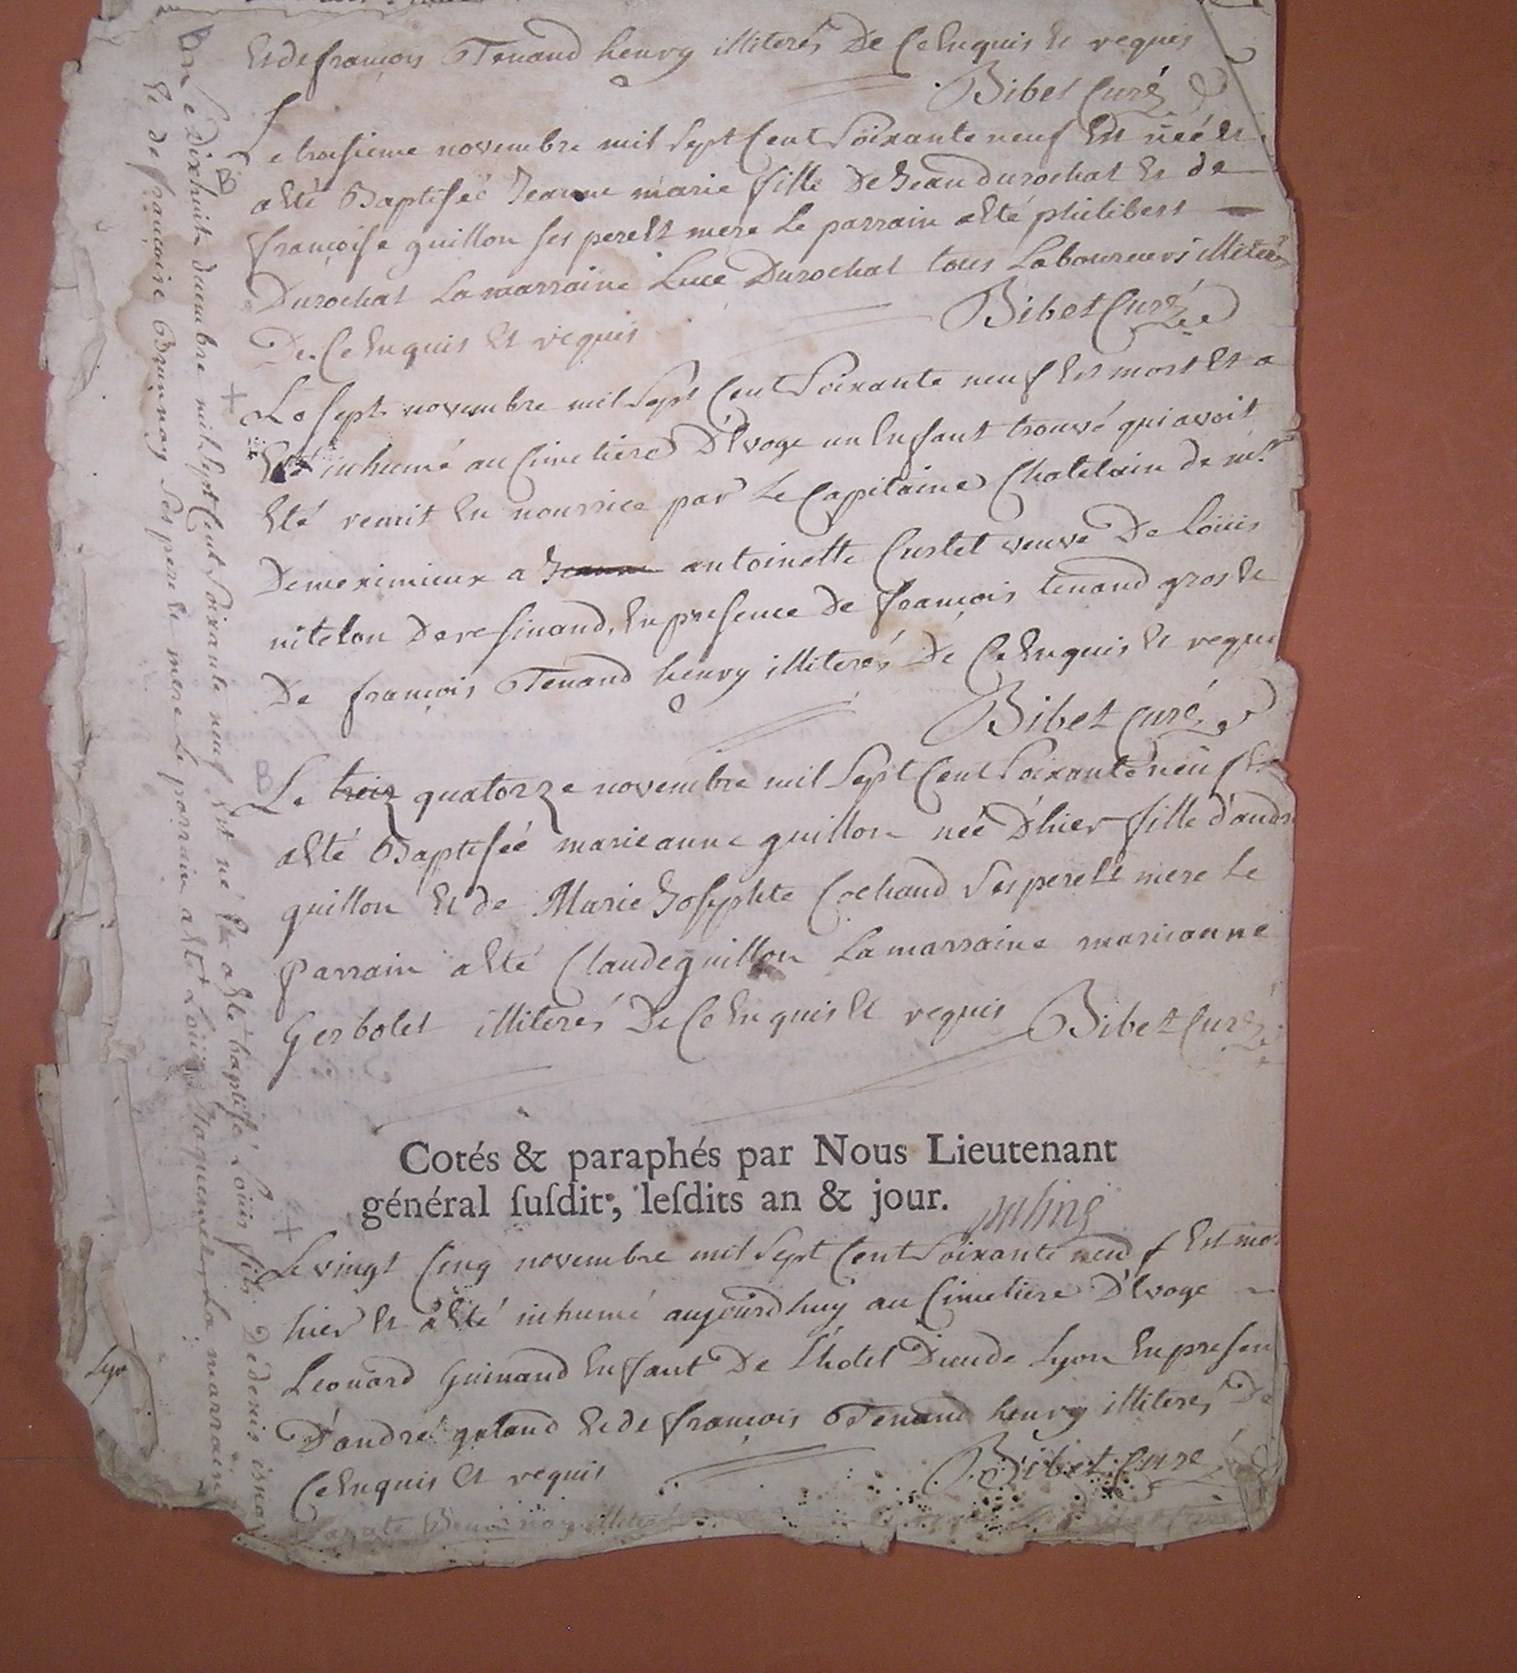 Et de françois Tenand henry illiterés De Ce Enquis Et requis
Bibet Curé
B
Le troisieme novembre mil Sept Cent Soixante neuf Est née Et
a Eté Baptisée Jeanne marie fille De Jean durochat Et de
françoise guillon ses pere Et mere Le parrain a Eté philibert
Durochat La marraine Luce Durochat tous Laboureurs illiterés
De Ce Enquis Et requis
Bibet Curé
+
Le sept novembre mil Sept Cent Soixante neuf Est mort Et a
Eté inhumé au Cimetiere D'Evoge un Enfant trouvé qui avoit
Eté remit En nourrice par Le Capitaine Chatelain de mr
Demeximieux a Jeanne antoinette Curtet veuve De Loüis
nitelon De resinand, En presence De françois tenand gros Et
De françois Tenand henry illiterés De Ce Enquis Et requis
Bibet Curé
B
Le treiz quatorze novembre mil Sept Cent Soixante neuf
a Eté Baptisée marieanne guillon née D'hier fille d'andré
guillon Et de Marie Josephte Cochand Ses pere Et mere Le
Parrain a Eté Claude guillon La marraine marieanne
Gerbolet illiterés De Ce Enquis Et requis Bibet Curé
Cotés & paraphés par Nous Lieutenant
général ſuſdit, leſdits an & jour.
+
Le vingt Cinq novembre mil Sept Cent Soixante neuf Est mo
hier Et a Eté inhumé aujourdhuy au Cimetiere D'Evoge
Leonard Guinand Enfant De L'hotel Dieu de Lyon En presen
D'andré galand Et de françois Tenand henry illiterés De
Ce Enquis Et requis
Bibet Curé
B
Le Dixhuit decembre mil Sept Cent Soixante neuf Est né Et a Eté baptisé Loüis fils De denis
Et de françoise Brunnoy Ses pere Et mere Le parrain a Eté Loüis La marraine
illiterés
Lyo